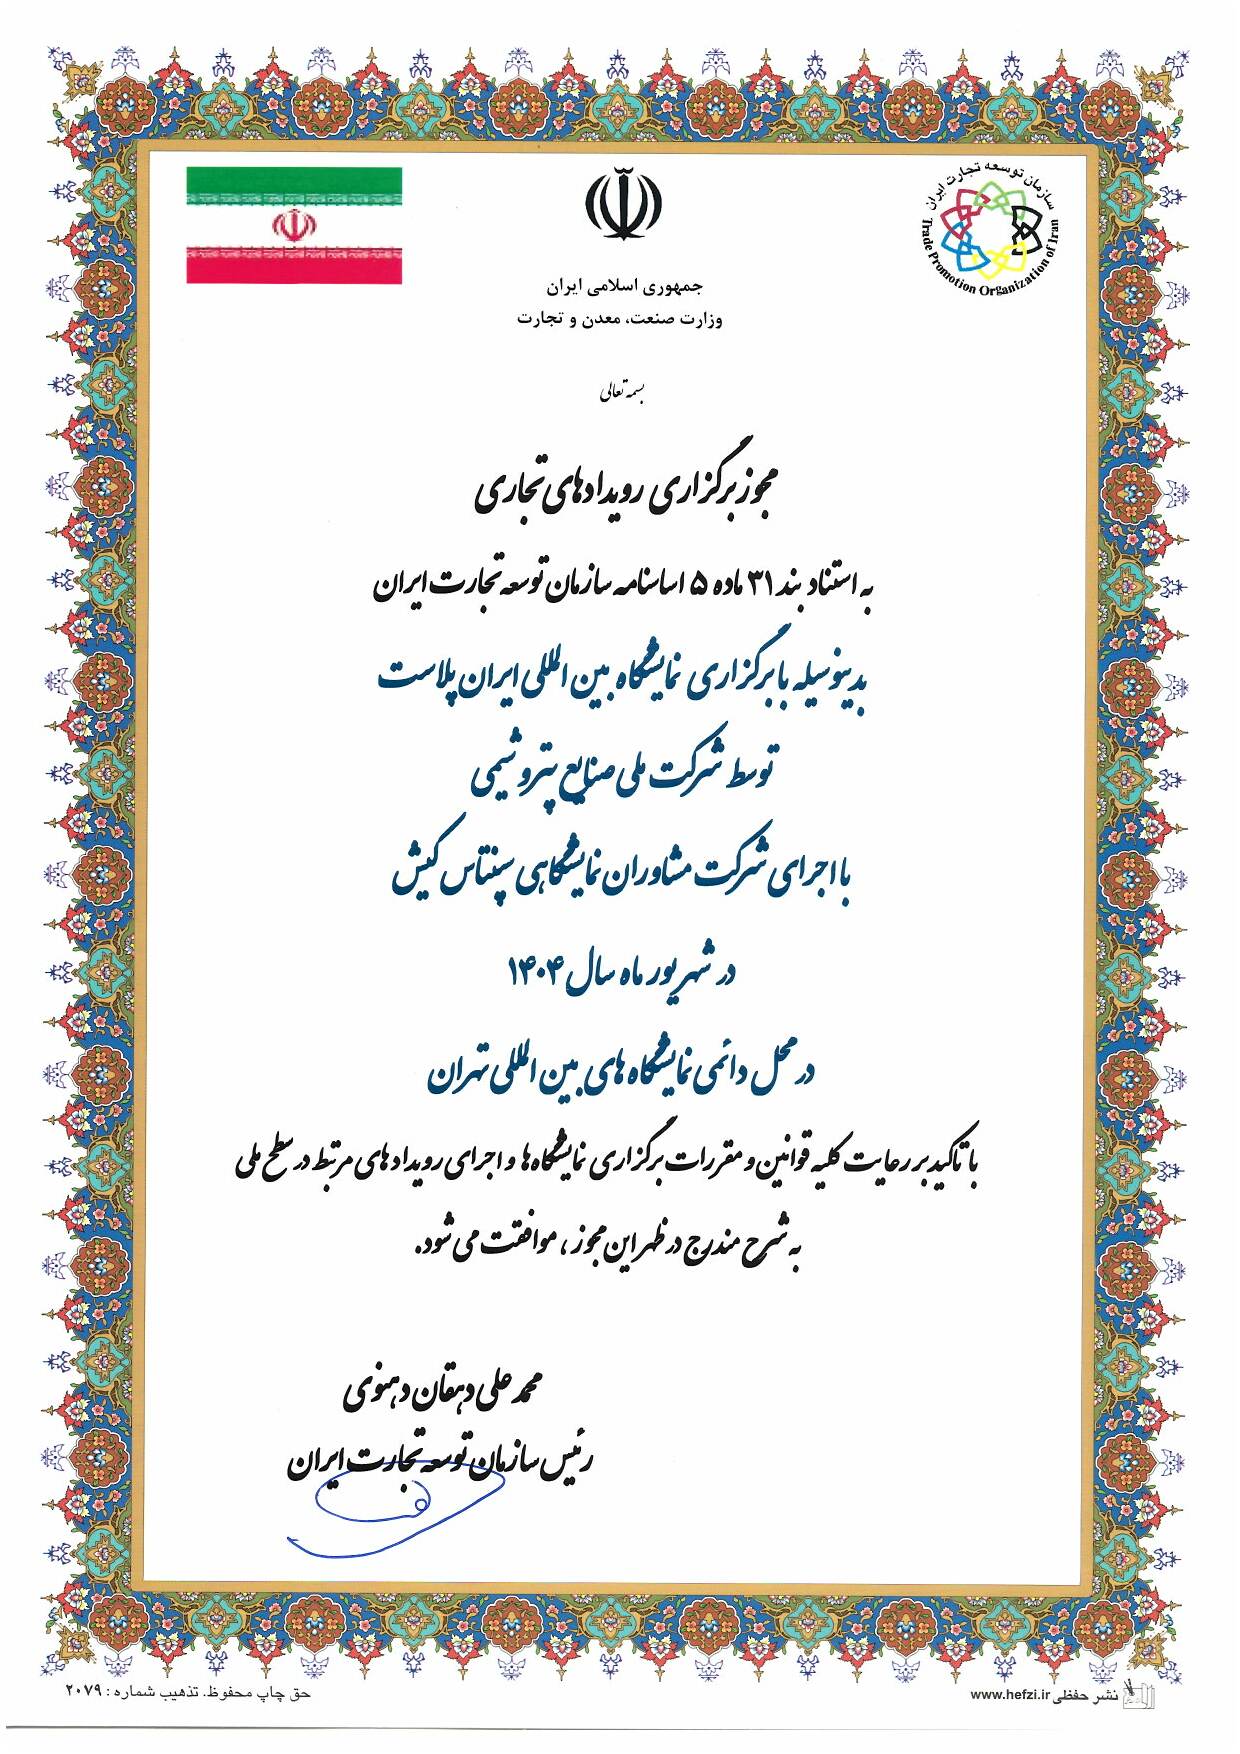 سازمان توسعه تجارت ایران
Trade Promotion Organization of Iran
جمهوری اسلامی ایران
وزارت صنعت، معدن و تجارت
بسمه تعالی
مجوز برگزاری رویدادهای تجاری
به استناد بند ۳۱ ماده ۵ اساسنامه سازمان توسعه تجارت ایران
بدینوسیله با برگزاری نمایشگاه بین المللی ایران پلاست
توسط شرکت ملی صنایع پتروشیمی
با اجرای شرکت مشاوران نمایشگاهی سپنتاس کیش
در شهریور ماه سال ۱۴۰۴
در محل دائمی نمایشگاه های بین المللی تهران
با تاکید بر رعایت کلیه قوانین و مقررات برگزاری نمایشگاه‌ها و اجرای رویدادهای مرتبط در سطح ملی
به شرح مندرج در ظهر این مجوز، موافقت می شود.
محمد علی دهقان دهنوی
رئیس سازمان توسعه تجارت ایران
نشر حفظی www.hefzi.ir
حق چاپ محفوظ. تذهیب شماره : ۲۰۷۹